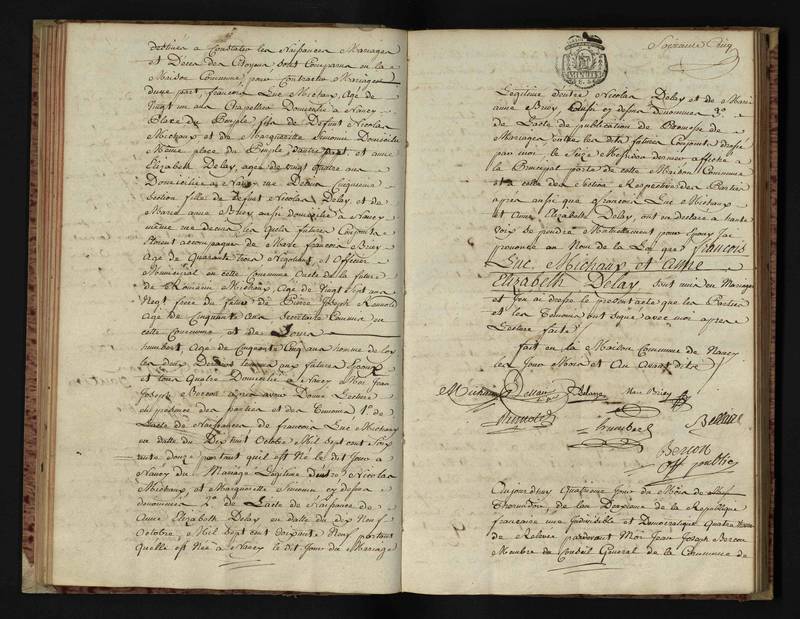 destinés a Constater les Naissances Mariages
et Décés des Citoyens sont Comparus en la
Maison Commune pour Contracter Mariage
d'une part, francois Luc Michaux, Agé de
Vingt un ans Chapellier Domicilié a Nancy
Place du Peuple, fils de Defunt Nicolas
Michaux et de Marguerithe Simonin Domiciliée
Même place du Peuple d'autre part, et anne
Elizabeth Delay, agée de vingt quatre ans
Domiciliée a Nancy rue Cinquieme
Section fille de Defunt Nicolas Delay, et de
Marie anne Briey aussi domiciliée a Nancy
même rue les quels futurs Conjoints
étoient accompagnés de Marc francois Briey
Agé de Quarante trois Négotiant, et Officier
Municipal en cette Commune Oncle de la future
de Romain Michaux, Agé de Vingt Sept ans
frere du futur de Pierre Joseph
Agé de Cinquante ans Secretaire Commis en
cette Commune et de Louis
humbert, Agé de Cinquante Cinq ans homme de loy
les deux Derniers temoins aux futurs Epoux
et tous Quatre Domiciliés a Nancy Moi Jean
Joseph Bercon après avoir Donné Lecture
en présence des parties et des temoins 1.° de
L'acte de Naissance de francois Luc Michaux
en datte du Dix huit Octobre Mil Sept cent Soix
ante douze portant qu'il est Né le dit Jour a
Nancy du Mariage Legitime d'entre Nicolas
Michaux, et Marguerithe Simonin cy dessus
dénommés 2.° de L'acte de Naissance de
Anne Elizabeth Delay en datte du dix Neuf
Octobre Mil Sept cent Soixante Neuf portant
qu'elle est Née a Nancy le dit Jour du Mariage
Soixante Cinq
Legitime d'entre Nicolas Delay et de Marie
anne Briey, aussi cy dessus denommés 3.°
de L'acte de publication de Promesse de
Mariage entre les dits futurs Conjoints dressé
par moi le Seize Messidor dernier affiché a
la Principal porte de cette Maison Commune
et a celle des Section Respective des Parties
apres aussi que francois Luc Michaux
et Anne Elizabeth Delay, ont eu déclaré a haute
voix se prendre Mutuellement pour Epoux J'ai
prononcé au Nom de la Loi que francois
Luc Michaux et Anne
Elizabeth Delay sont unis en Mariage
et J'en ai dressé le present acte que les Parties
et les Temoins ont signé avec moi apres
Lecture faite
fait en la Maison Commune de Nancy
les Jour Mois et an avant dits
Michaux Delay Marc Briey
humbert
Bercon
off public
Aujourd'huy Quatrieme Jour du Mois de
Thermidor de L'an Deuxieme de la Republique
francaise une Indivisible et Democratique Quatre heures
de Relevée pardevant Moi Jean Joseph Bercon
Membre du Conseil General de la Commune de